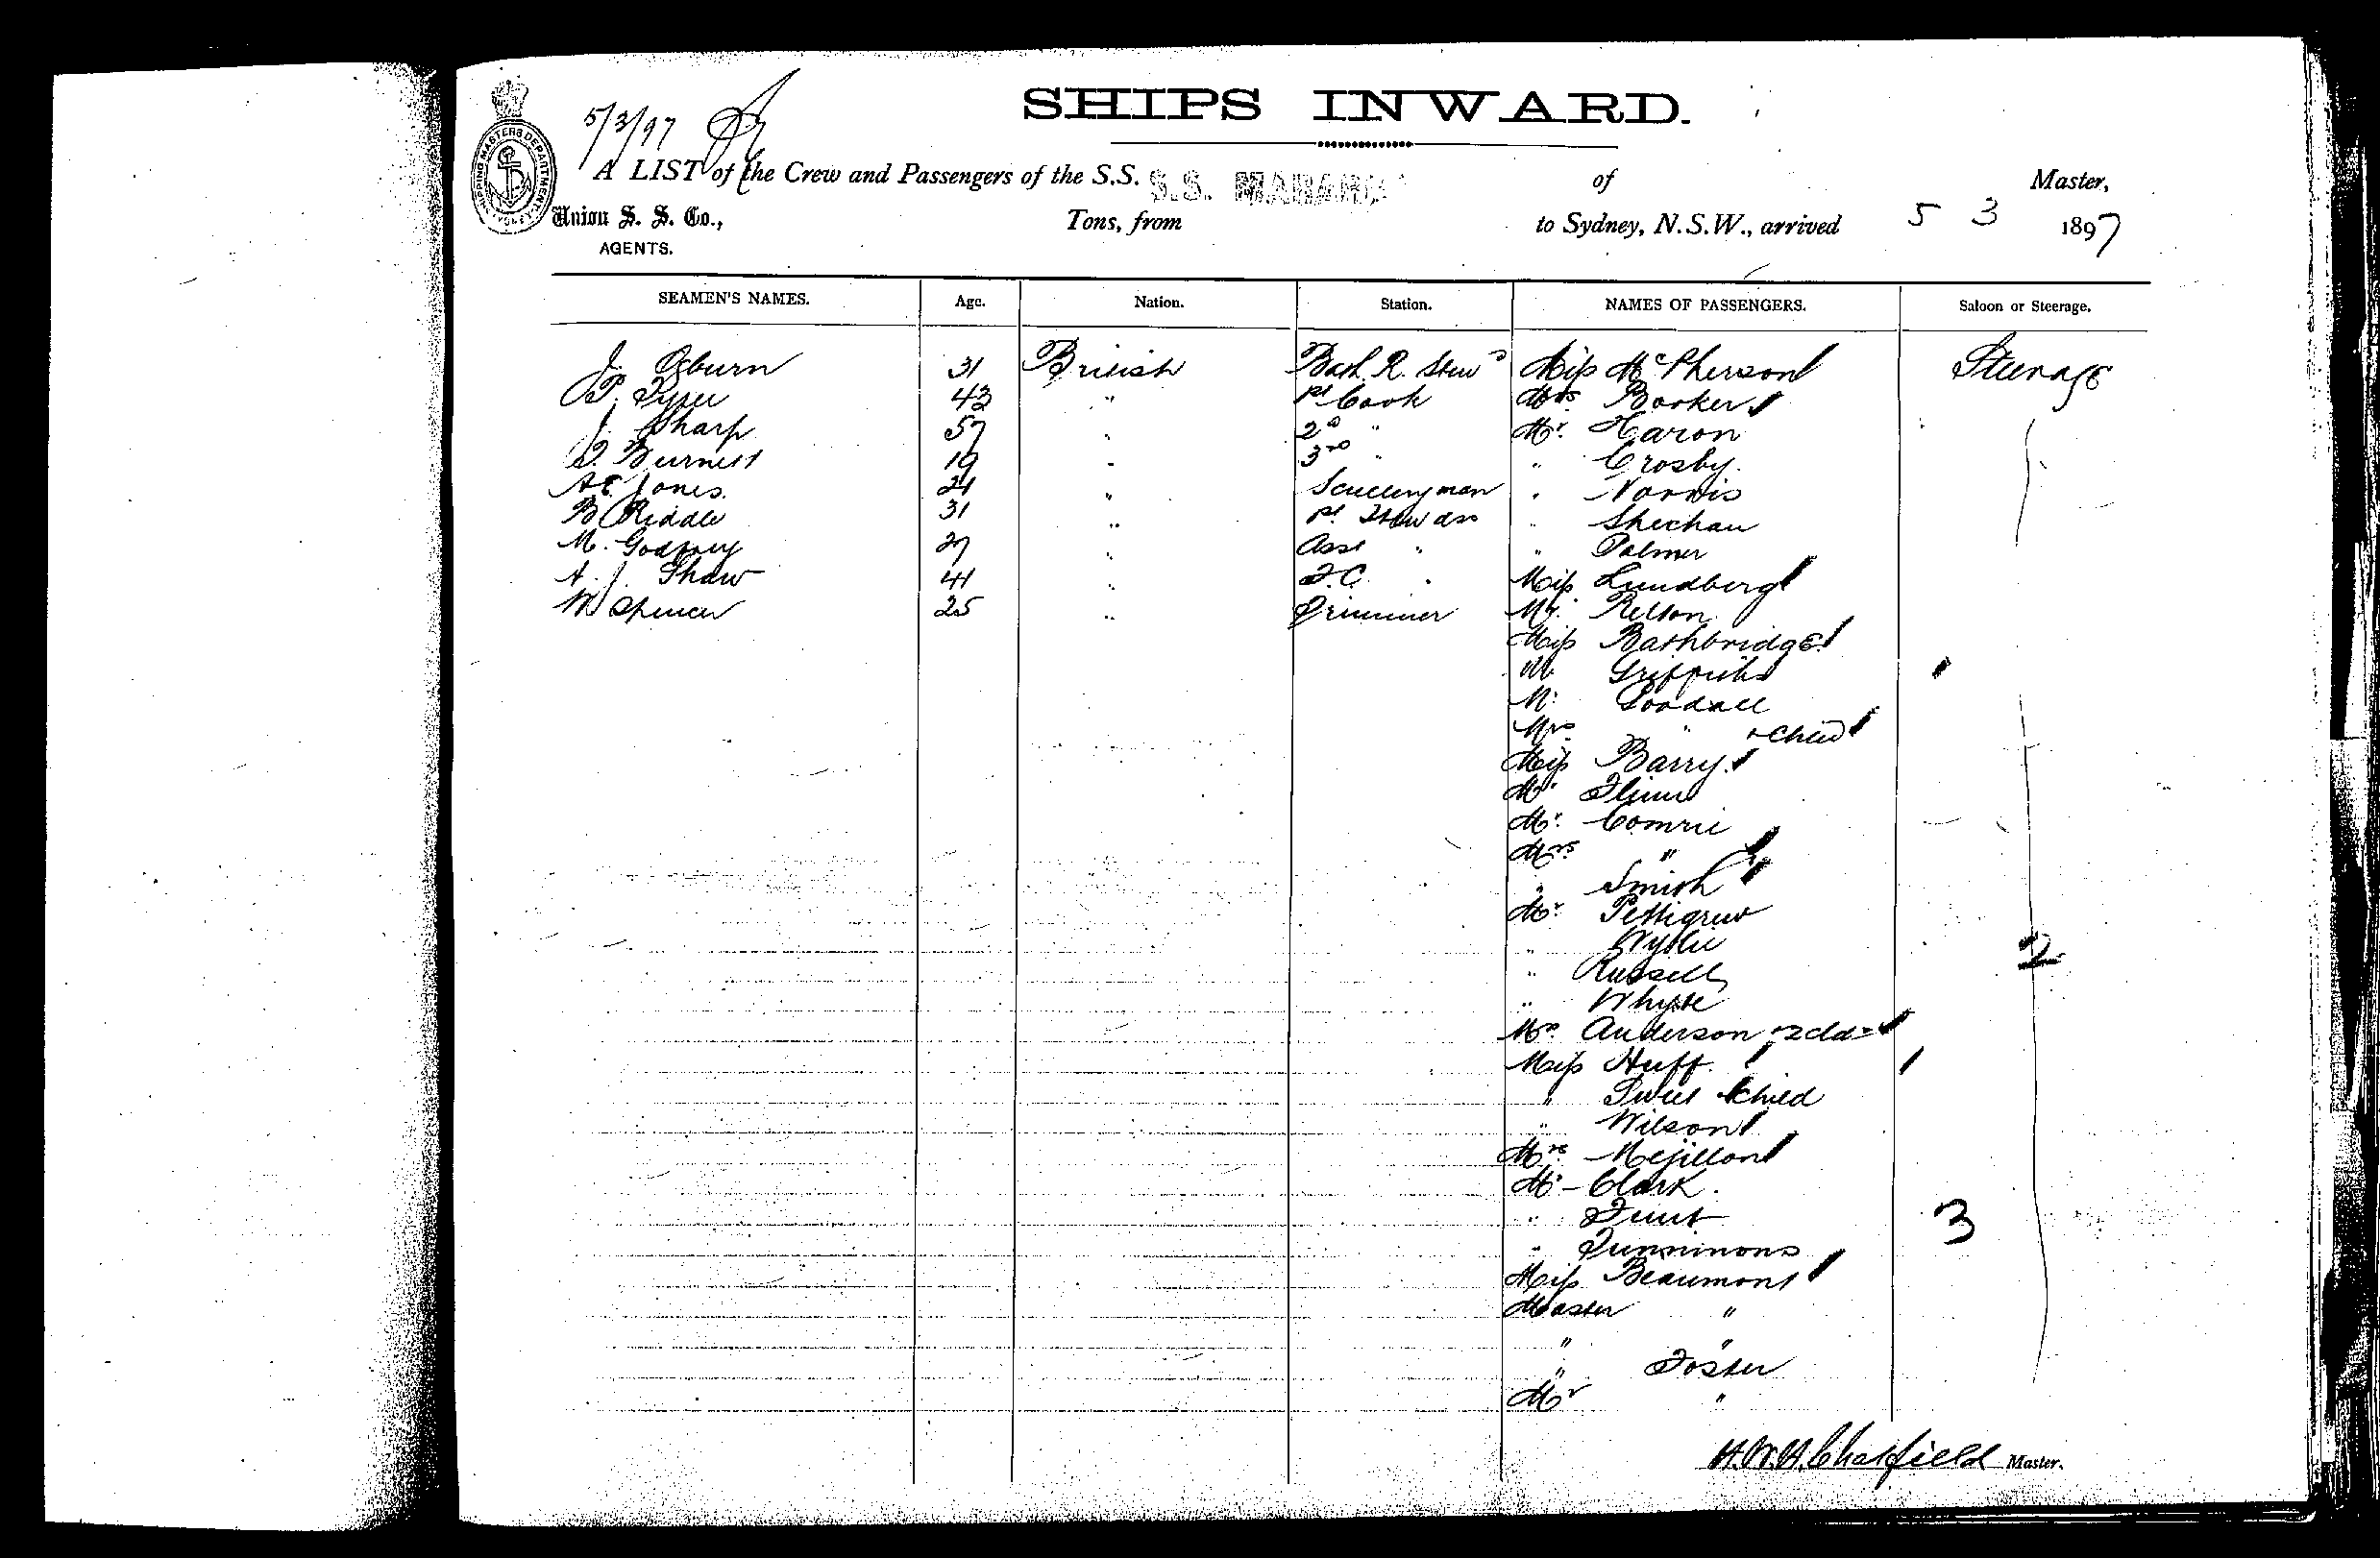 5/3/97
SHIPS INWARD.
A LIST of the Crew and Passengers of the S.S. S.S. MARAROA of Master,
Union S. S. Co., Tons, from to Sydney, N.S.W., arrived 5 3 1897
AGENTS.
SHIPPING MASTERS DEPARTMENT
SEAMEN'S NAMES. Age. Nation. Station. NAMES OF PASSENGERS. Saloon or Steerage.
J. Osburn 31 British Bath R. Stewd Miss McPherson Steerage
P. 43 " Cook Mrs Booker
J. Sharp 57 " 2nd " Mr. Haron
Burnett 19 " 3rd " " Crosby.
A E Jones. 21 " Scullery man " Norris
B Riddle 31 " " Sheehan
M. Godfrey 27 " Asst " " Palmer
A. J. Shaw 41 " F.C. " Miss Lundberg
W Spencer 25 " Trimmer Mr. Relton
Miss Bathbridge
M Griffiths
Mr Goodall
Mrs " + child
Miss Barry.
Mr Flinn
Mr. Comrie
Mrs "
" Smith
Mr. Pettigrew
" Wylie 2
" Russell
" Whyte
Mrs Anderson + 2 chdn
Miss Huff.
" Sweet + child
" Wilson
Mrs Mejillon
Mr Clark.
" 3
" Dunninons
Miss Beaumont
Master "
" "
" Foster
Mr "
H.W.H. Chatfield Master.